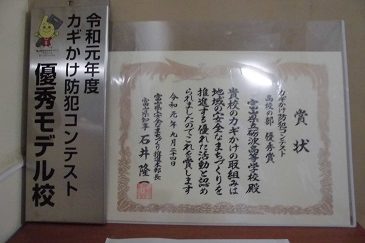 令和元年度
カギかけ防犯コンテスト
優秀モデル校
賞状
カギかけ防犯コンテスト
高校の部 優秀賞
富山県立砺波高等学校殿
貴校のカギかけの取組みは
地域の安全なまちづくりを
推進する優れた活動と認め
られましたのでこれを賞します
令和元年九月二十四日
富山県安全なまちづくり推進本部長
富山県知事 石井隆一